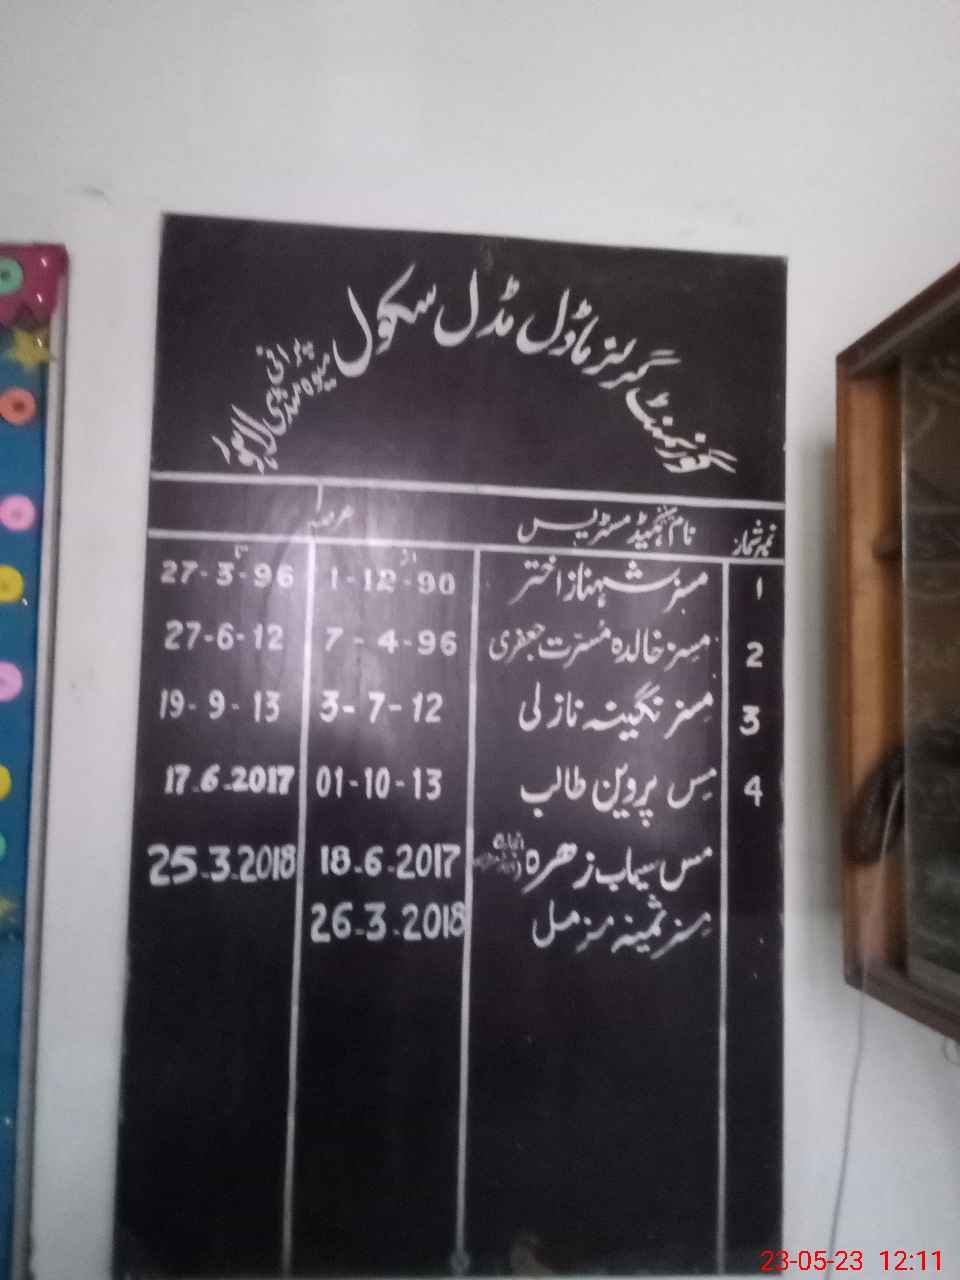 گورنمنٹ گرلز ماڈل مڈل سکول پرانی میوہ منڈی لاہور
نمبر شمار نام ہیڈ مسٹریس عرصہ
از تا
1 مسز شہناز اختر 1-12-90 27-3-96
2 مسز خالدہ مسرت جعفری 7-4-96 27-6-12
3 مسز نگینہ نازلی 3-7-12 19-9-13
4 مس پروین طالب 01-10-13 17.6.2017
مس سیماب زھرہ 18-6-2017 25.3.2018
مسز ثمینہ مزمل 26-3-2018
23-05-23 12:11